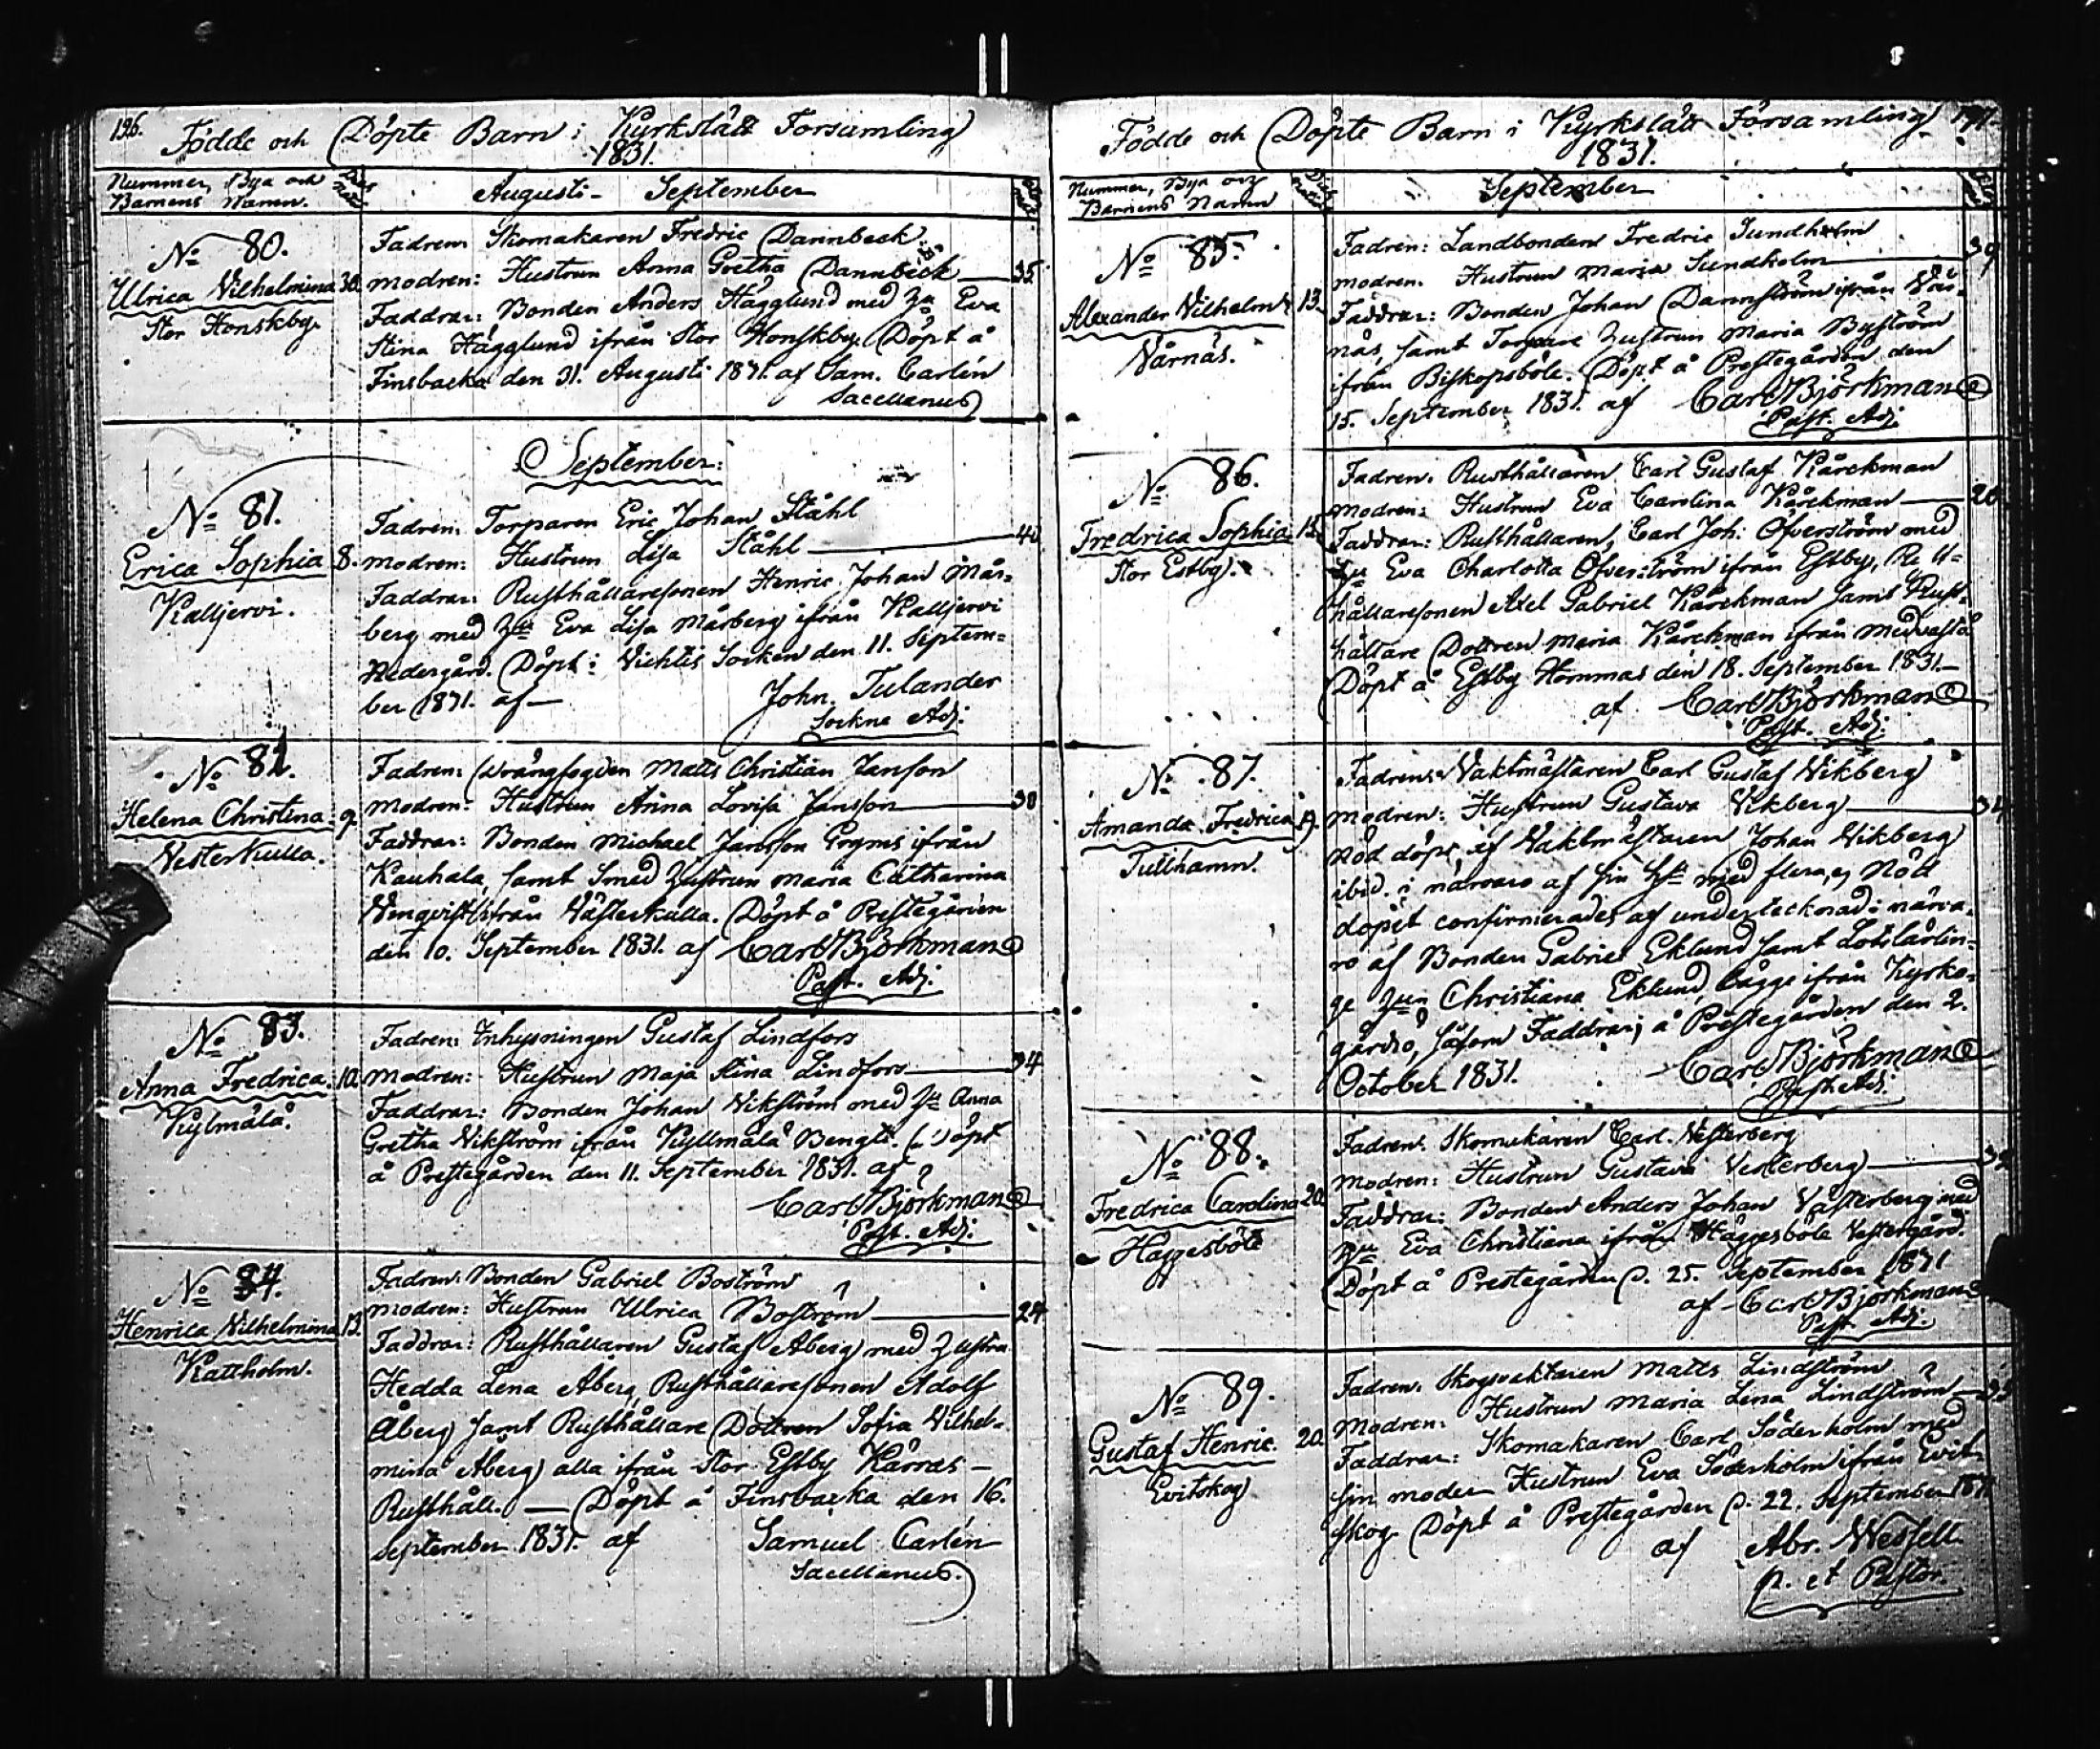 196.
Födde och Döpte Barn i Kyrkslätt Forsamling
1831.
Nummer, Bya och
Barnens Namn.
Augusti - September
No 80.
Ulrica Wilhelmina 30.
Stor Honskby.
Fadren: Skomakaren Fredric Dannbeck
modren: Hustrun Anna Gretha Dannbeck 35.
Faddrar: Bonden Anders Hägglund med Hu Eva
Stina Hägglund ifrån Stor Honskby. Döpt å
Finsbacka den 31. Augusti 1831. af Sam. Carlén
Sacellanus
September:
No 81.
Erica Sophia 8.
Kalljervi.
Fadren: Torparen Eric Johan Ståhl
modren: Hustrun Lisa Ståhl 40
Faddrar: Rusthållaresonen Henric Johan Mår=
berg med Hu Eva Lisa Mårberg ifrån Kalljervi
Nedergård. Döpt i Vichtis Socken den 11. Septem=
ber 1831. af —
John. Tulander
Sockne Adj.
No 82.
Helena Christina 9.
Vesterkulla.
Fadren: Drängfogden Matts Christian Janson
modren: Hustrun Anna Lovisa Jansson 30
Faddrar: Bonden Michael Jansson ifrån
Kauhala, samt Smed Hustrun Maria Catharina
Wenqvist ifrån Västerkulla. Döpt å Prestegården
den 10. September 1831. af Carl Björkman
Past. Adj.
No 83.
Anna Fredrica. 10.
Kylmälä.
Fadren: Inhysningen Gustaf Lindfors
modren: Hustrun Maja Stina Lindfors 34
Faddrar: Bonden Johan Wikström med Hu Anna
Gretha Wikström ifrån Kyllmälä Bengts. Döpt
å Prestegården den 11. September 1831. af
Carl Björkman
Past. Adj.
No 84.
Henrica Wilhelmina 13.
Kattholm.
Fadren: Bonden Gabriel Boström
modren: Hustrun Ulrica Boström 24
Faddrar: Rusthållaren Gustaf Åberg med Hustru
Hedda Lena Åberg, Rusthållaresonen Adolf
Åberg samt Rusthållare Dottren Sofia Wilhel=
mina Åberg alla ifrån Stor Estby Kärras —
Rusthåll. — Döpt å Finsbacka den 16.
September 1831. af Samuel Carlén
Sacellanus.
197.
Födde och Döpte Barn i Kyrkslätt Församling
1831.
Nummer, Bya och
Barnens Namn
September
No 85.
Alexander Wilhelm 13.
Värnäs.
Fadren: Landbonden Fredric Sundholm
modren: Hustrun Maria Sundholm 39
Faddrar: Bonden Johan Dannström ifrån Vär=
näs, samt Torpare Hustrun Maria Byström
ifrån Biskopsböle. Döpt å Prestegården den
15. September 1831. af Carl Björkman
Past. Adj.
No 86.
Fredrica Sophia
Stor Estby.
Fadren: Rusthållaren Carl Gustaf Kårckman
modren: Hustrun Eva Carolina Kårckman
Faddrar: Rusthållaren, Carl Joh: Öfverström med
Hu Eva Charlotta Öfverström ifrån Estby, Rust=
hållaresonen Axel Gabriel Kårckman samt Rust=
hållare Dottren Maria Kårckman ifrån
Döpt å Estby Hommas den 18. September 1831. —
af Carl Björkman
Past. Adj.
No 87.
Amanda Fredrica
Tullhamn.
Fadren: Vaktmästaren Carl Gustaf Wikberg
modren: Hustrun Gustava Wikberg
Nöd döpt af Vaktmästaren Johan Wikberg
ibid. i närvaro af sin Hu med flera, Nöd
dopet confirmerades af undertecknad i närva=
ro af Bonden Gabriel Eklund samt Lotslärlin=
ge Hun Christiana Eklund, bägge ifrån Kyrko=
gårdsö, såsom Faddrar; å Prestegården den 2.
October 1831. Carl Björkman
Past. Adj.
No 88.
Fredrica Carolina 20.
Haggesböle
Fadren: Skomakaren Carl Westerberg
modren: Hustrun Gustava Vesterberg
Faddrar: Bonden Anders Johan Västerberg med
Hu Eva Christiana ifrån Häggesböle Vestergård.
Döpt å Prestegården d. 25. September 1831
af Carl Björkman
Past. Adj.
No 89.
Gustaf Henric. 20.
Evitskog
Fadren: Skogvaktaren Matts Lindström
modren: Hustrun Maria Lena Lindström
Faddrar: Skomakaren Carl Söderholm med
sin moder Hustrun Eva Söderholm ifrån Evit=
skog. Döpt å Prestegården d. 22. September 1831
af Abr. Wessell
p. et Pastor.